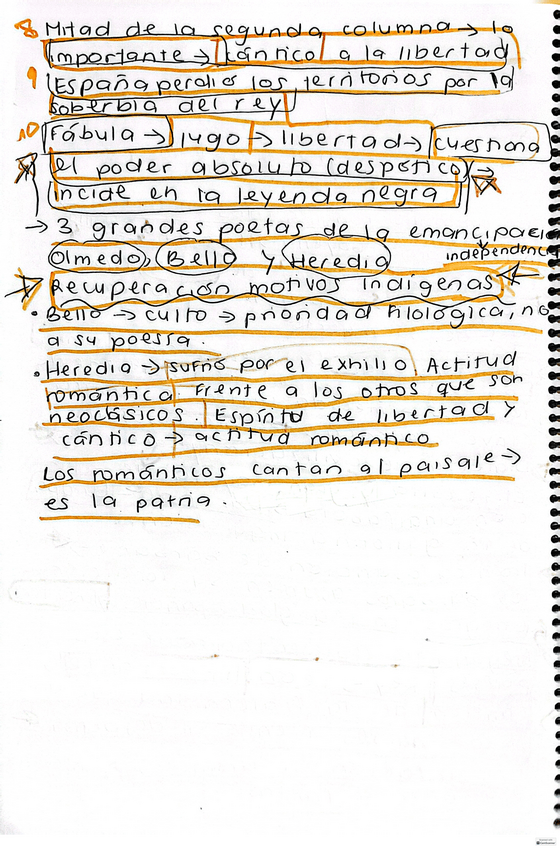 8 Mitad de la segunda columna → lo
importante → cántico a la libertad
9 España perdió los territorios por la
soberbia del rey
10 Fábula → yugo → libertad → cuestiona
el poder absoluto (despótico) →
incide en la leyenda negra
→ 3 grandes poetas de la emancipación
independencia
Olmedo, Bello y Heredia
→ Recuperación motivos indígenas ←
• Bello → culto → prioridad filológica, no
a su poesía.
• Heredia → sufrió por el exhilio. Actitud
romántica frente a los otros que son
neoclásicos. Espíritu de libertad y
cántico → actitud romántico
Los románticos cantan al paisaje →
es la patria.